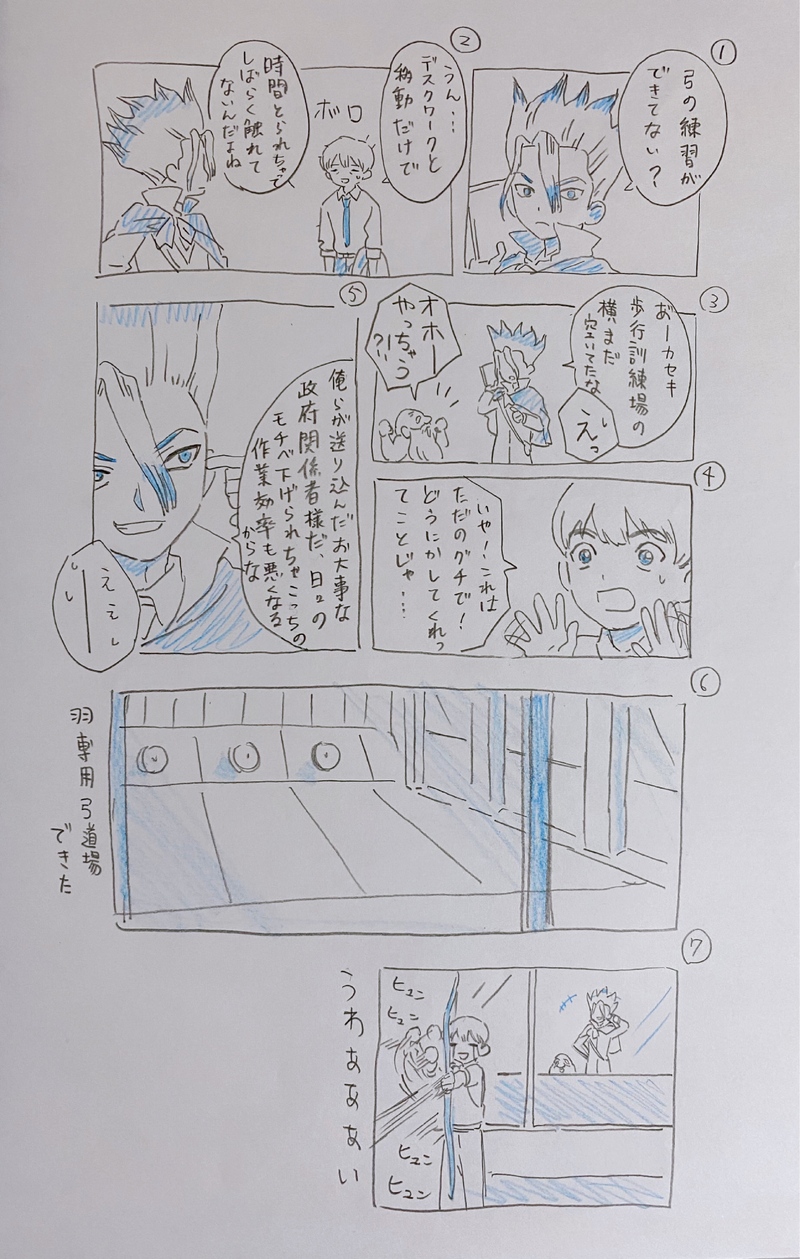 ①
弓の練習が
できてない？
②
うん…
デスクワークと
移動だけで
ボロ
時間とられちゃって
しばらく触れて
ないんだよね
③
おーカセキ
歩行訓練場の
横まだ
空いてたな
えっ
オホー
やっちゃう
?!!
④
いや！これは
ただのグチで！
どうにかしてくれっ
てことじゃ…
⑤
俺らが送り込んだお大事な
政府関係者様だ、日々の
モチベ下げられちゃこっちの
作業効率も悪くなる
からな
ええ
⑥
羽専用弓道場
できた
⑦
ヒュン
ヒュン
ヒュン
ヒュン
うわぁぁぁい